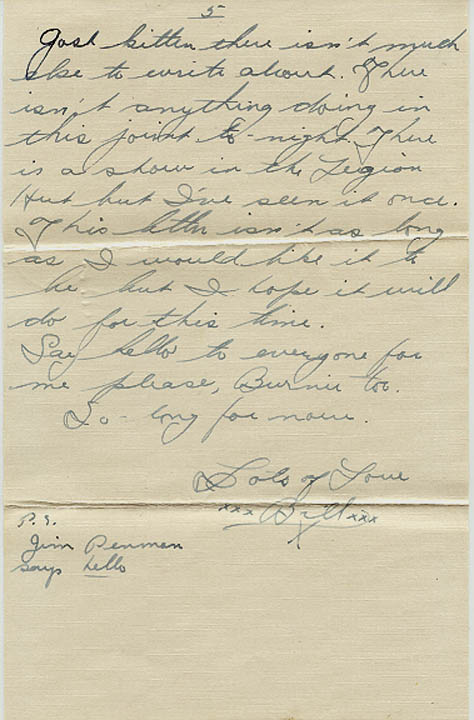 5
Gosh kitten there isn't much
else to write about. There
isn't anything doing in
this joint to-night. There
is a show in the Legion
Hut but I've seen it once.
This letter isn't as long
as I would like it to
be but I hope it will
do for this time.
Say hello to everyone for
me please, Burnie too.
So-long for now.
Lots of Love
xxx Bill xxx
P.S.
Jim Penman
says hello